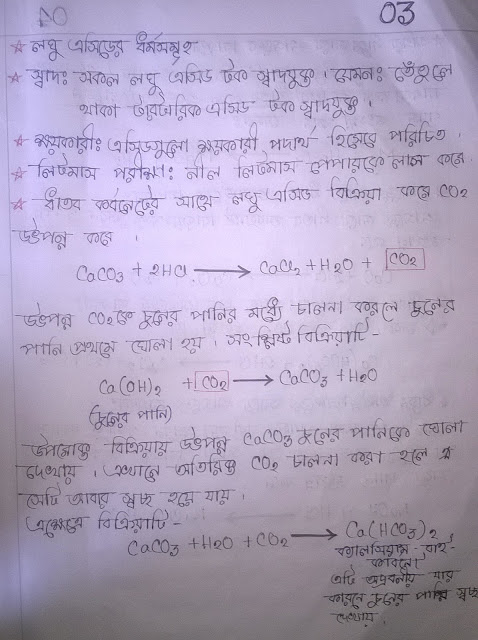 03
☆ লঘু এসিডের ধর্মসমূহ
☆ স্বাদঃ সকল লঘু এসিড টক স্বাদযুক্ত। যেমনঃ তেঁতুলে
থাকা টারটারিক এসিড টক স্বাদযুক্ত।
☆ ক্ষয়কারীঃ এসিডগুলো ক্ষয়কারী পদার্থ হিসেবে পরিচিত।
☆ লিটমাস পরীক্ষাঃ নীল লিটমাস পেপারকে লাল করে।
☆ ধাতব কার্বনেটের সাথে লঘু এসিড বিক্রিয়া করে CO2
উৎপন্ন করে।
CaCO3 + 2HCl ⟶ CaCl2 + H2O + CO2
উৎপন্ন CO2কে চুনের পানির মধ্যে চালনা করলে চুনের
পানি প্রথমে ঘোলা হয়। সংশ্লিষ্ট বিক্রিয়াটি-
Ca(OH)2 + CO2 ⟶ CaCO3 + H2O
(চুনের পানি)
উপরোক্ত বিক্রিয়ায় উৎপন্ন CaCO3 চুনের পানিকে ঘোলা
দেখায়। এখানে অতিরিক্ত CO2 চালনা করা হলে
সেটি আবার স্বচ্ছ হয়ে যায়।
এক্ষেত্রে বিক্রিয়াটি-
CaCO3 + H2O + CO2 ⟶ Ca(HCO3)2
ক্যালসিয়াম বাই-
কার্বনেট
এটি দ্রবনীয় যার
কারনে চুনের পানি স্বচ্ছ
দেখায়।